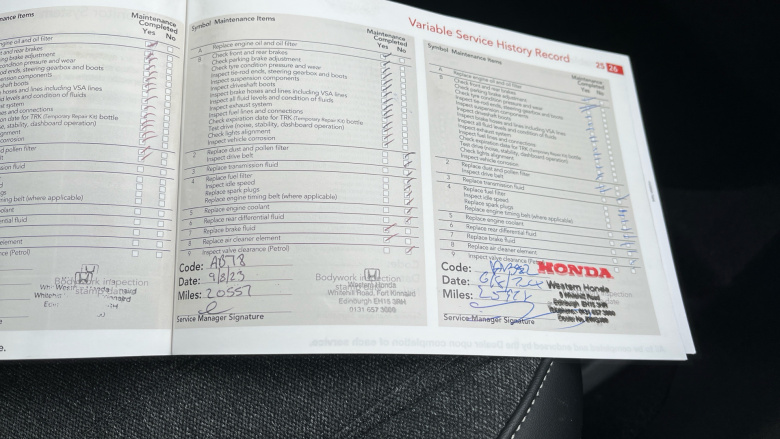 Variable Service History Record
25 26
Maintenance Items
Maintenance Completed
Yes No
engine oil and oil filter
and rear brakes
brake adjustment
condition pressure and wear
rod ends, steering gearbox and boots
hoses and lines including VSA lines
levels and condition of fluids
system
and connections
date for TRK (Temporary Repair Kit) bottle
noise, stability, dashboard operation)
corrosion
pollen filter
timing belt (where applicable)
element
Bodywork inspection
Symbol Maintenance Items
Maintenance Completed
Yes No
A Replace engine oil and oil filter
B Check front and rear brakes
Check parking brake adjustment
Check tyre condition pressure and wear
Inspect tie-rod ends, steering gearbox and boots
Inspect suspension components
Inspect driveshaft boots
Inspect brake hoses and lines including VSA lines
Inspect all fluid levels and condition of fluids
Inspect exhaust system
Inspect fuel lines and connections
Check expiration date for TRK (Temporary Repair Kit) bottle
Test drive (noise, stability, dashboard operation)
Check lights alignment
Inspect vehicle corrosion
2 Replace dust and pollen filter
Inspect drive belt
3 Replace transmission fluid
4 Replace fuel filter
Inspect idle speed
Replace spark plugs
Replace engine timing belt (where applicable)
5 Replace engine coolant
6 Replace rear differential fluid
7 Replace brake fluid
8 Replace air cleaner element
9 Inspect valve clearance (Petrol)
Code: AB78
Date: 9/8/23
Miles: 20557
Service Manager Signature
Bodywork inspection
Western Honda
Whitehill Road, Fort Kinnaird
Edinburgh EH15 3RH
0131 657 3009
Symbol Maintenance Items
Maintenance Completed
Yes No
A Replace engine oil and oil filter
B Check front and rear brakes
Check parking brake adjustment
Check tyre condition pressure and wear
Inspect tie-rod ends, steering gearbox and boots
Inspect suspension components
Inspect driveshaft boots
Inspect brake hoses and lines including VSA lines
Inspect all fluid levels and condition of fluids
Inspect exhaust system
Inspect fuel lines and connections
Check expiration date for TRK (Temporary Repair Kit) bottle
Test drive (noise, stability, dashboard operation)
Check lights alignment
Inspect vehicle corrosion
2 Replace dust and pollen filter
Inspect drive belt
3 Replace transmission fluid
4 Replace fuel filter
Inspect idle speed
Replace spark plugs
Replace engine timing belt (where applicable)
5 Replace engine coolant
6 Replace rear differential fluid
7 Replace brake fluid
8 Replace air cleaner element
9 Inspect valve clearance (Petrol)
Code:
Date:
Miles:
Service Manager Signature
HONDA
Western Honda